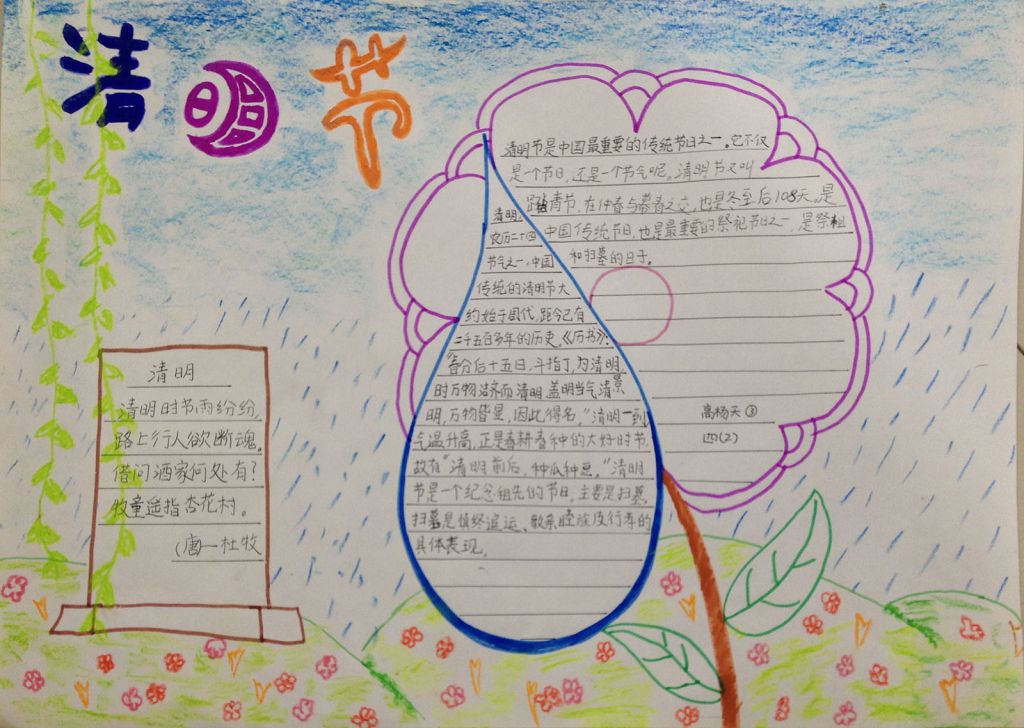 清明节
清明节是中国最重要的传统节日之一。它不仅
是一个节日,还是一个节气呢。清明节又叫
踏青节,在仲春与暮春之交,也是冬至后108天。是
中国传统节日,也是最重要的祭祀节日之一,是祭祖
和扫墓的日子。
高杨天③
四(2)
清明,
农历二十四
节气之一,中国
传统的清明节大
约始于周代,距今已有
二千五百多年的历史,《历书》:
“春分后十五日,斗指丁,为清明,
时万物洁齐而清明,盖明当气清景
明,万物皆显,因此得名。”清明一到
气温升高,正是春耕春种的大好时节,
故有“清明前后,种瓜种豆。”清明
节是一个纪念祖先的节日。主要是扫墓,
扫墓是慎终追远、敦亲睦族及行孝的
具体表现。
清明
清明时节雨纷纷,
路上行人欲断魂。
借问酒家何处有?
牧童遥指杏花村。
(唐一杜牧